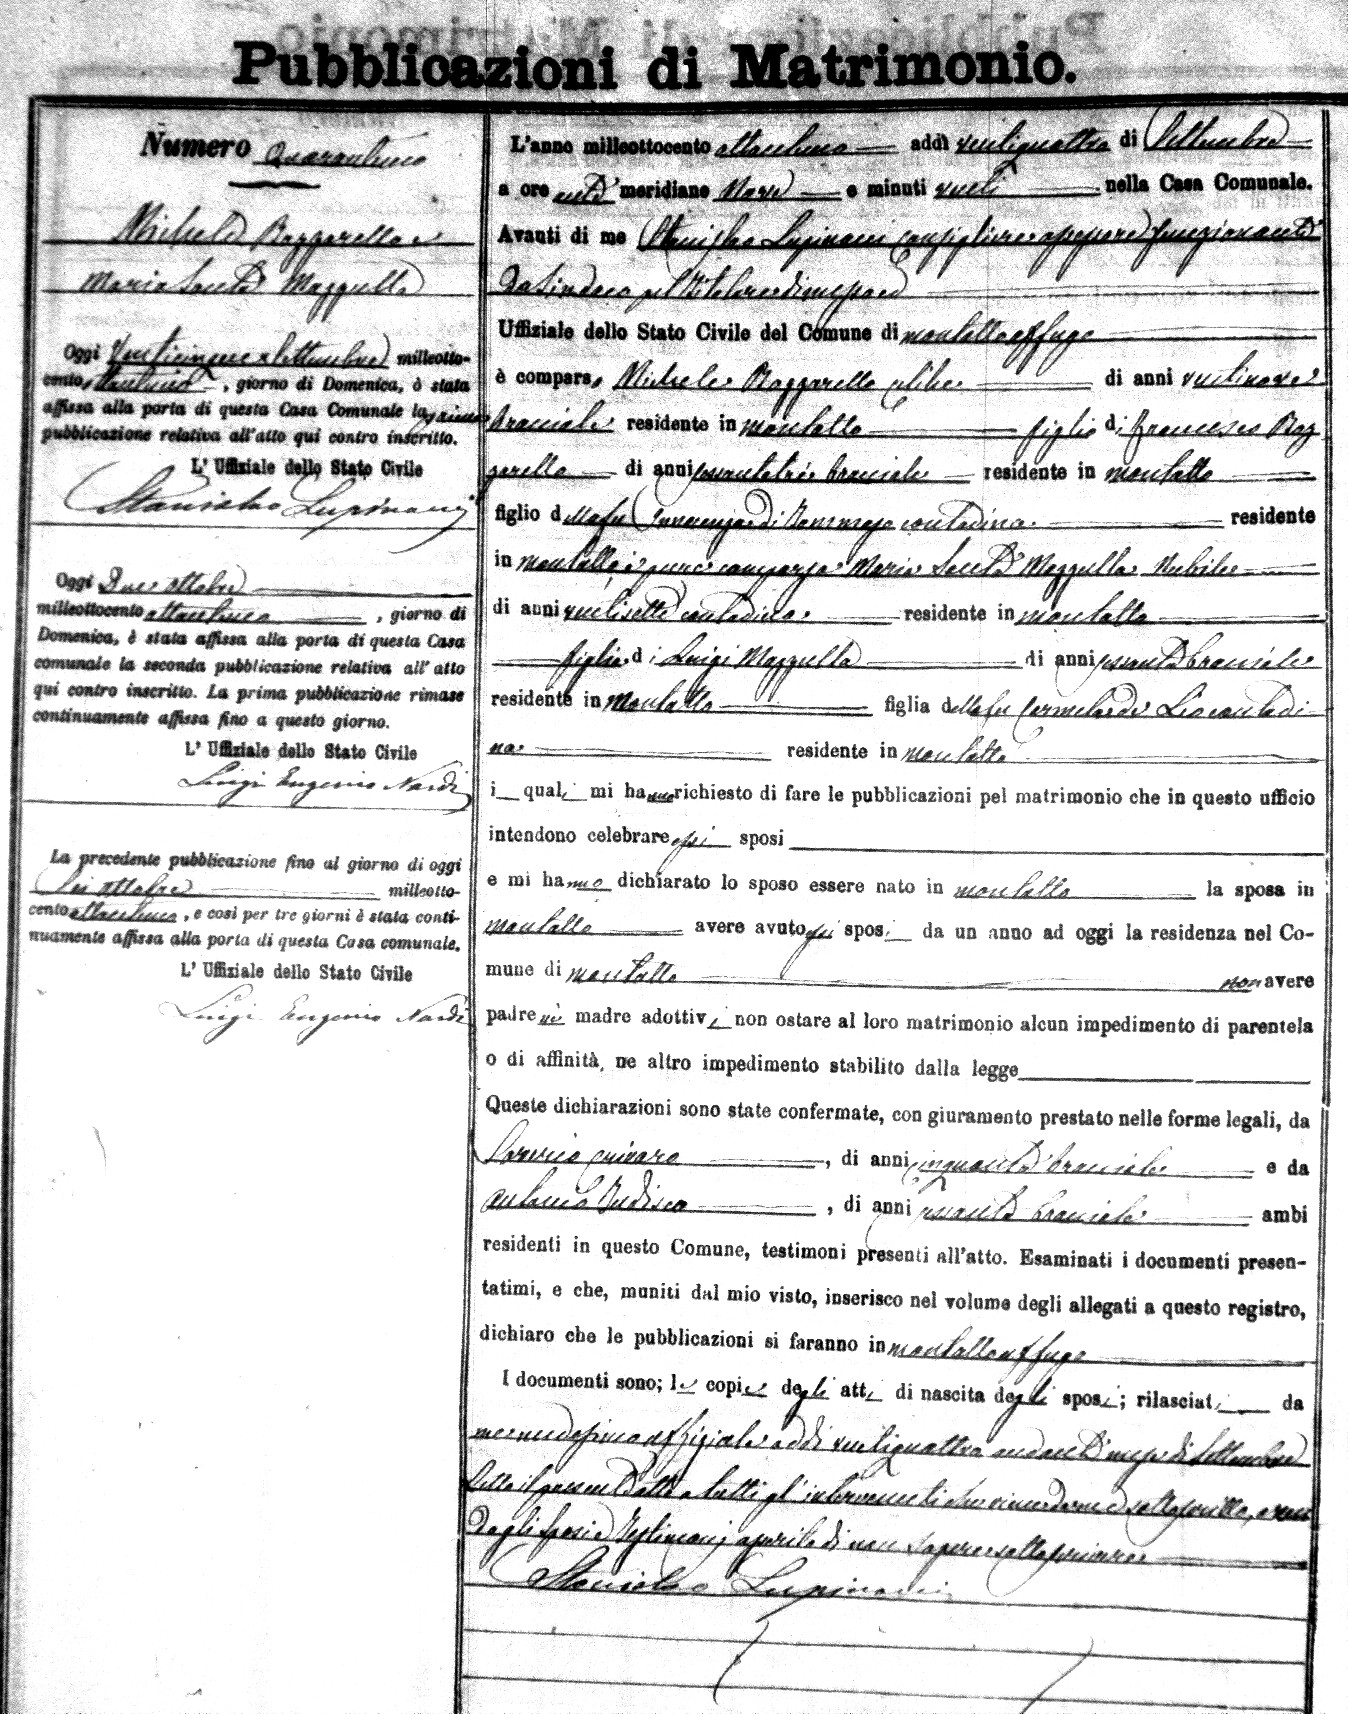 Pubblicazioni di Matrimonio.
Numero Quarantuno
Michele Bazzarello e
Maria Santa Mazzulla
Oggi Venticinque Settembre milleotto-
cento ottantuno, giorno di Domenica, è stata
affissa alla porta di questa Casa Comunale la prima
pubblicazione relativa all'atto qui contro inscritto.
L' Uffiziale dello Stato Civile
Stanislao Lupinacci
Oggi Due ottobre
milleottocento ottantuno, giorno di
Domenica, è stata affissa alla porta di questa Casa
comunale la seconda pubblicazione relativa all' atto
qui contro inscritto. La prima pubblicazione rimase
continuamente affissa fino a questo giorno.
L' Uffiziale dello Stato Civile
Luigi Eugenio Nardi
La precedente pubblicazione fino al giorno di oggi
Sei ottobre milleotto-
cento ottantuno, e così per tre giorni è stata conti-
nuamente affissa alla porta di questa Casa comunale.
L' Uffiziale dello Stato Civile
Luigi Eugenio Nardi
L'anno milleottocento ottantuno addì ventiquattro di Settembre
a ore anti meridiane Nove e minuti venti nella Casa Comunale.
Avanti di me Stanislao Lupinacci Consigliere funzionante
da Sindaco pel Titolare
Uffiziale dello Stato Civile del Comune di Montalto Uffugo
è comparso Michele Bazzarello celibe di anni ventinove
bracciale residente in Montalto figlio di Francesco Baz
zarello di anni sessantatre bracciale residente in Montalto
figlio della fu di Tommaso contadina residente
in Montalto è pure comparsa Maria Santa Mazzulla Nubile
di anni ventisette contadina residente in Montalto
figlia di Luigi Mazzulla di anni sessanta bracciale
residente in Montalto figlia della fu Carmela de Lio contadi
na residente in Montalto
i quali mi hanno richiesto di fare le pubblicazioni pel matrimonio che in questo ufficio
intendono celebrare essi sposi
e mi hanno dichiarato lo sposo essere nato in Montalto la sposa in
Montalto avere avuto essi sposi da un anno ad oggi la residenza nel Co-
mune di Montalto non avere
padre nè madre adottivi non ostare al loro matrimonio alcun impedimento di parentela
o di affinità, ne altro impedimento stabilito dalla legge
Queste dichiarazioni sono state confermate, con giuramento prestato nelle forme legali, da
Saverio Crivaro, di anni cinquanta bracciale e da
Antonio Iudisca, di anni sessanta bracciale ambi
residenti in questo Comune, testimoni presenti all'atto. Esaminati i documenti presen-
tatimi, e che, muniti dal mio visto, inserisco nel volume degli allegati a questo registro,
dichiaro che le pubblicazioni si faranno in Montalto Uffugo
I documenti sono; le copie degli atti di nascita degli sposi; rilasciati da
me medesimo uffiziale addì ventiquattro andante mese di Settembre
Letto il presente atto a tutti gl'intervenuti sottoscritto,
dagli sposi e Testimonj di non sapere sottoscrivere
Stanislao Lupinacci